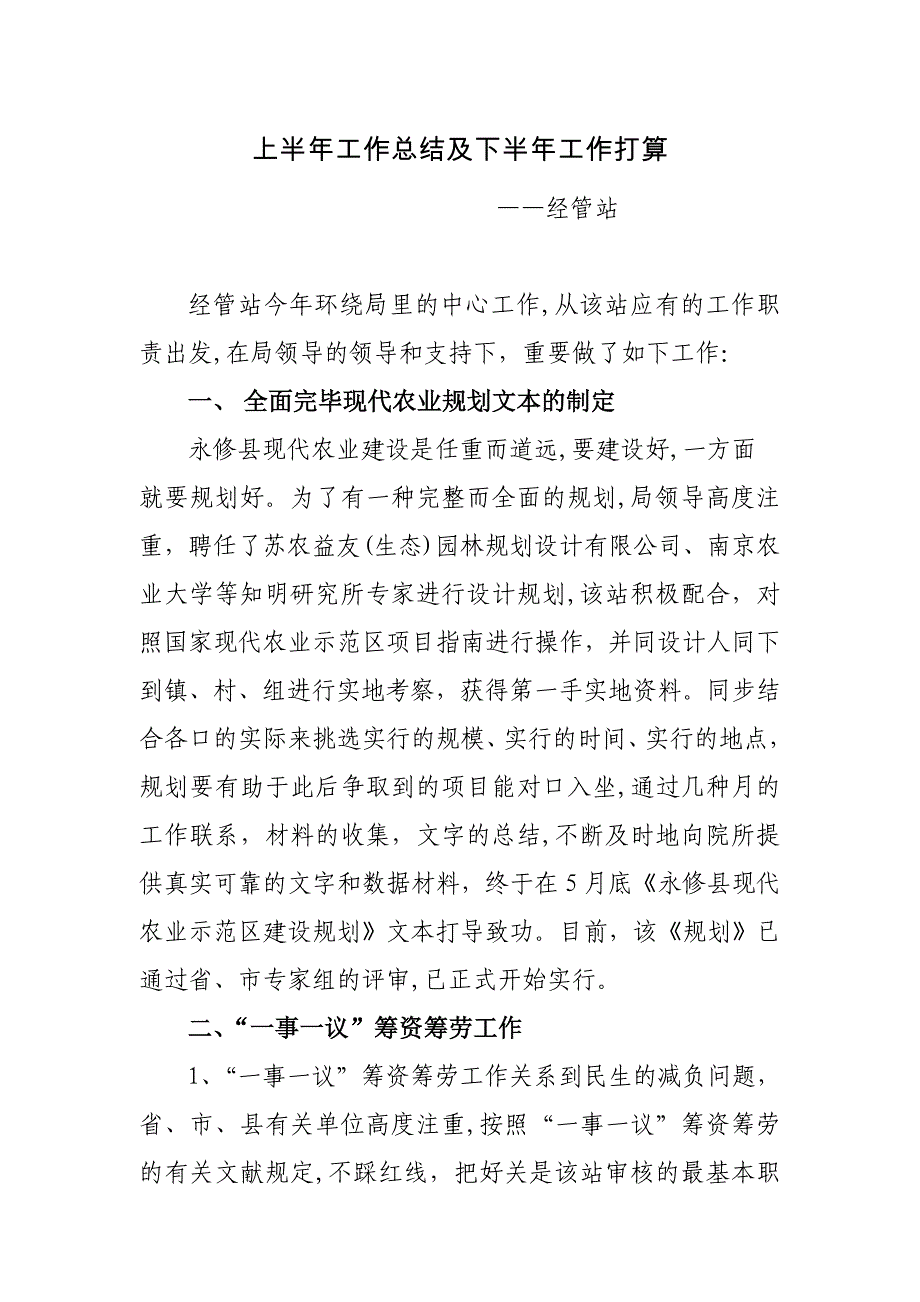 上半年工作总结及下半年工作打算
——经管站
经管站今年环绕局里的中心工作,从该站应有的工作职
责出发,在局领导的领导和支持下，重要做了如下工作：
一、 全面完毕现代农业规划文本的制定
永修县现代农业建设是任重而道远,要建设好,一方面
就要规划好。为了有一种完整而全面的规划,局领导高度注
重，聘任了苏农益友(生态)园林规划设计有限公司、南京农
业大学等知明研究所专家进行设计规划,该站积极配合，对
照国家现代农业示范区项目指南进行操作，并同设计人同下
到镇、村、组进行实地考察，获得第一手实地资料。同步结
合各口的实际来挑选实行的规模、实行的时间、实行的地点，
规划要有助于此后争取到的项目能对口入坐,通过几种月的
工作联系，材料的收集，文字的总结,不断及时地向院所提
供真实可靠的文字和数据材料，终于在5月底《永修县现代
农业示范区建设规划》文本打导致功。目前，该《规划》已
通过省、市专家组的评审,已正式开始实行。
二、“一事一议”筹资筹劳工作
1、“一事一议”筹资筹劳工作关系到民生的减负问题，
省、市、县有关单位高度注重,按照“一事一议”筹资筹劳
的有关文献规定,不踩红线，把好关是该站审核的最基本职